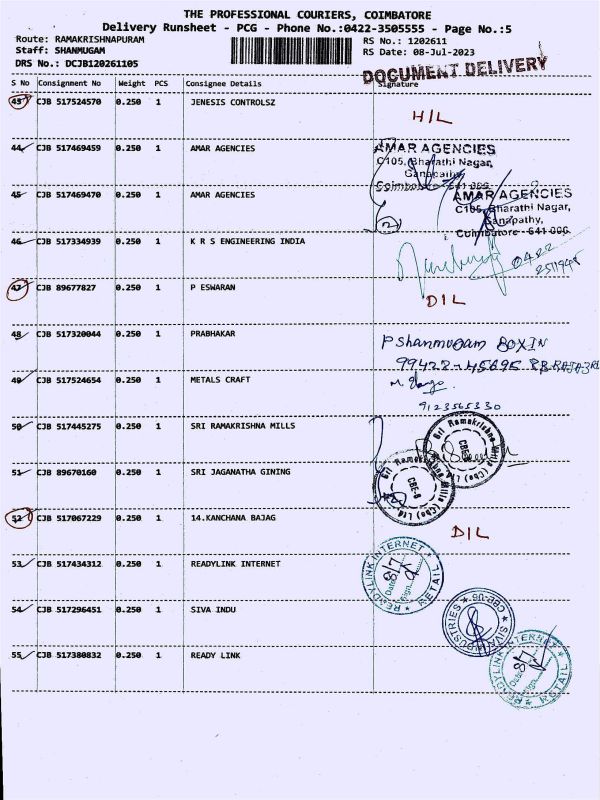 THE PROFESSIONAL COURIERS, COIMBATORE
Delivery Runsheet - PCG - Phone No.:0422-3505555 - Page No.:5
Route: RAMAKRISHNAPURAM
RS No.: 1202611
Staff: SHANMUGAM
RS Date: 08-Jul-2023
DRS No.: DCJB120261105
DOCUMENT DELIVERY
S No Consignment No Weight PCS Consignee Details Signature
43 CJB 517524570 0.250 1 JENESIS CONTROLSZ H/L
44 CJB 517469459 0.250 1 AMAR AGENCIES
AMAR AGENCIES
C105, Bharathi Nagar,
Ganapathy,
Coimbatore - 641 006
45 CJB 517469470 0.250 1 AMAR AGENCIES
AMAR AGENCIES
C105, Bharathi Nagar,
Ganapathy,
Coimbatore - 641 006
2
46 CJB 517334939 0.250 1 K R S ENGINEERING INDIA
0422
47 CJB 89677827 0.250 1 P ESWARAN D/L
48 CJB 517320044 0.250 1 PRABHAKAR
P Shanmugam BOXIN
99422-45695
49 CJB 517524654 0.250 1 METALS CRAFT
9123565330
50 CJB 517445275 0.250 1 SRI RAMAKRISHNA MILLS
Sri Ramakrishna Mills (Cbe) Ltd
CBE-6
51 CJB 89670160 0.250 1 SRI JAGANATHA GINING
Sri Ramakrishna Mills (Cbe) Ltd
CBE-6
52 CJB 517067229 0.250 1 14.KANCHANA BAJAG D/L
53 CJB 517434312 0.250 1 READYLINK INTERNET
READYLINK INTERNET RETAIL
Date 8/7
Sign
54 CJB 517296451 0.250 1 SIVA INDU
INDUSTRIES CBE-06
55 CJB 517380832 0.250 1 READY LINK
READYLINK INTERNET RETAIL
Date 8/7
Sign